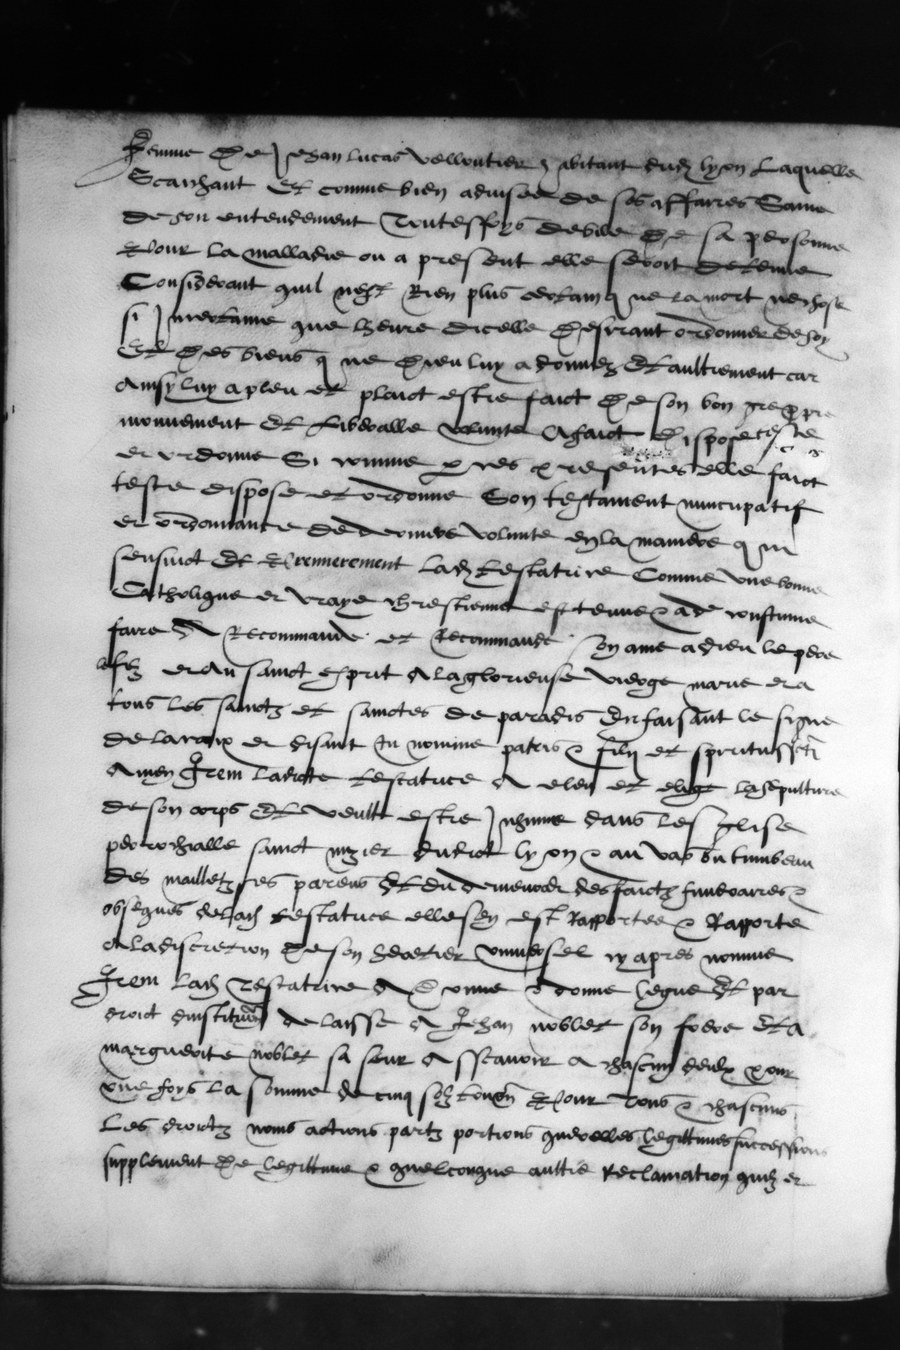 Femme de Jehan Lucas velloutier habitant dud lyon Laquelle
Scaichant Et comme bien advisee de ses affaires Saine
de son entendement Toutesfoys debile de sa personne
Pour la malladie ou a present elle seroit detenue
Considerant quil nest Rien plus certain que la mort ne chose
si Incertaine que lheure dicelle Desirant ordonner de soy
Et des biens que Dieu luy a donnez Et aultrement car
Ainsy luy a pleu et plaict estre faict De son bon gre propre
mouvement Et liberalle volunte A faict Dispose teste
et ordonne Si comme par ces presentes elle faict
teste dispose et ordonne Son testament nuncupatif
et ordonnance de derniere volunte en la maniere qui
sensuict Et Premierement Lad Testatrice Comme une bonne
Catholique et vraye chrestienne est tenue & a de coustume
faire A Recommande et Recommande son ame a dieu le pere
le filz et au sainct esprit A la glorieuse vierge marie et a
tous les sainctz et sainctes de paradis En faisant le signe
de la croix et disant In nomine patris & filii et spiritus sancti
Amen Item ladicte testatrice A eleu et elige la sepulture
de son corps Et veult estre Inhume dans Lesglise
perrochialle sainct nizier dudict lyon & au vas ou tumbeau
des mailletz ses parens Et du demeurant des faictz funeraires &
obseques de lad testatrice elle sen est Rapportee & Rapporte
A la discretion de son heretier universel cy apres nomme
Item Lad Testatrice A donne & donne legue Et par
droict dinstitution delaisse A Jehan noblet son frere Et a
marguerite noblet sa seur Assavoir a chascun deulx pour
une foys la somme de cinq solz tournois Pour Tous & chascuns
Les droictz noms actions partz portions querelles legittimes successions
supplement de legittime & quelconque aultre reclamation quilz et